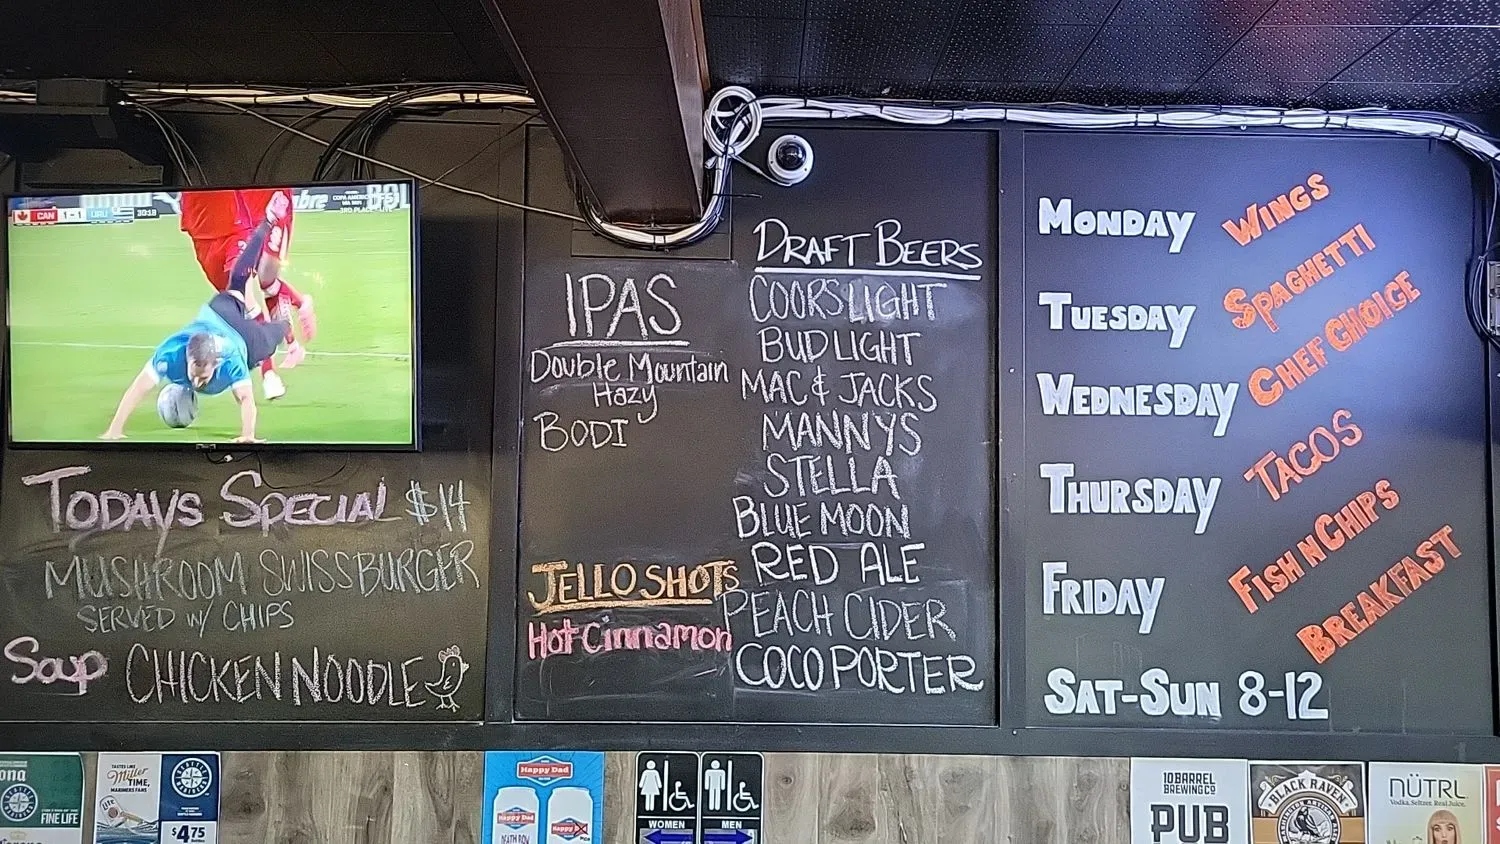 CAN 1-1 URU
COPA AMERICA
3RD PLACE
TODAYS SPECIAL $14
MUSHROOM SWISS BURGER
SERVED W/ CHIPS
Soup CHICKEN NOODLE
IPAS
Double Mountain
Hazy
BODI
JELLO SHOTS
Hot Cinnamon
DRAFT BEERS
COORS LIGHT
BUD LIGHT
MAC & JACKS
MANNYS
STELLA
BLUE MOON
RED ALE
PEACH CIDER
COCO PORTER
MONDAY WINGS
TUESDAY SPAGHETTI
WEDNESDAY CHEF CHOICE
THURSDAY TACOS
FRIDAY FISH N CHIPS
BREAKFAST
SAT-SUN 8-12
ona
FINE LIFE
TASTES LIKE
Miller
TIME,
MARINERS FANS
$4.75
Happy Dad
Happy Dad
DEATH ROW
Happy Dad
WOMEN
MEN
10 BARREL
BREWING CO
PUB
BLACK RAVEN
NÜTRL
Vodka. Seltzer. Real Juice.